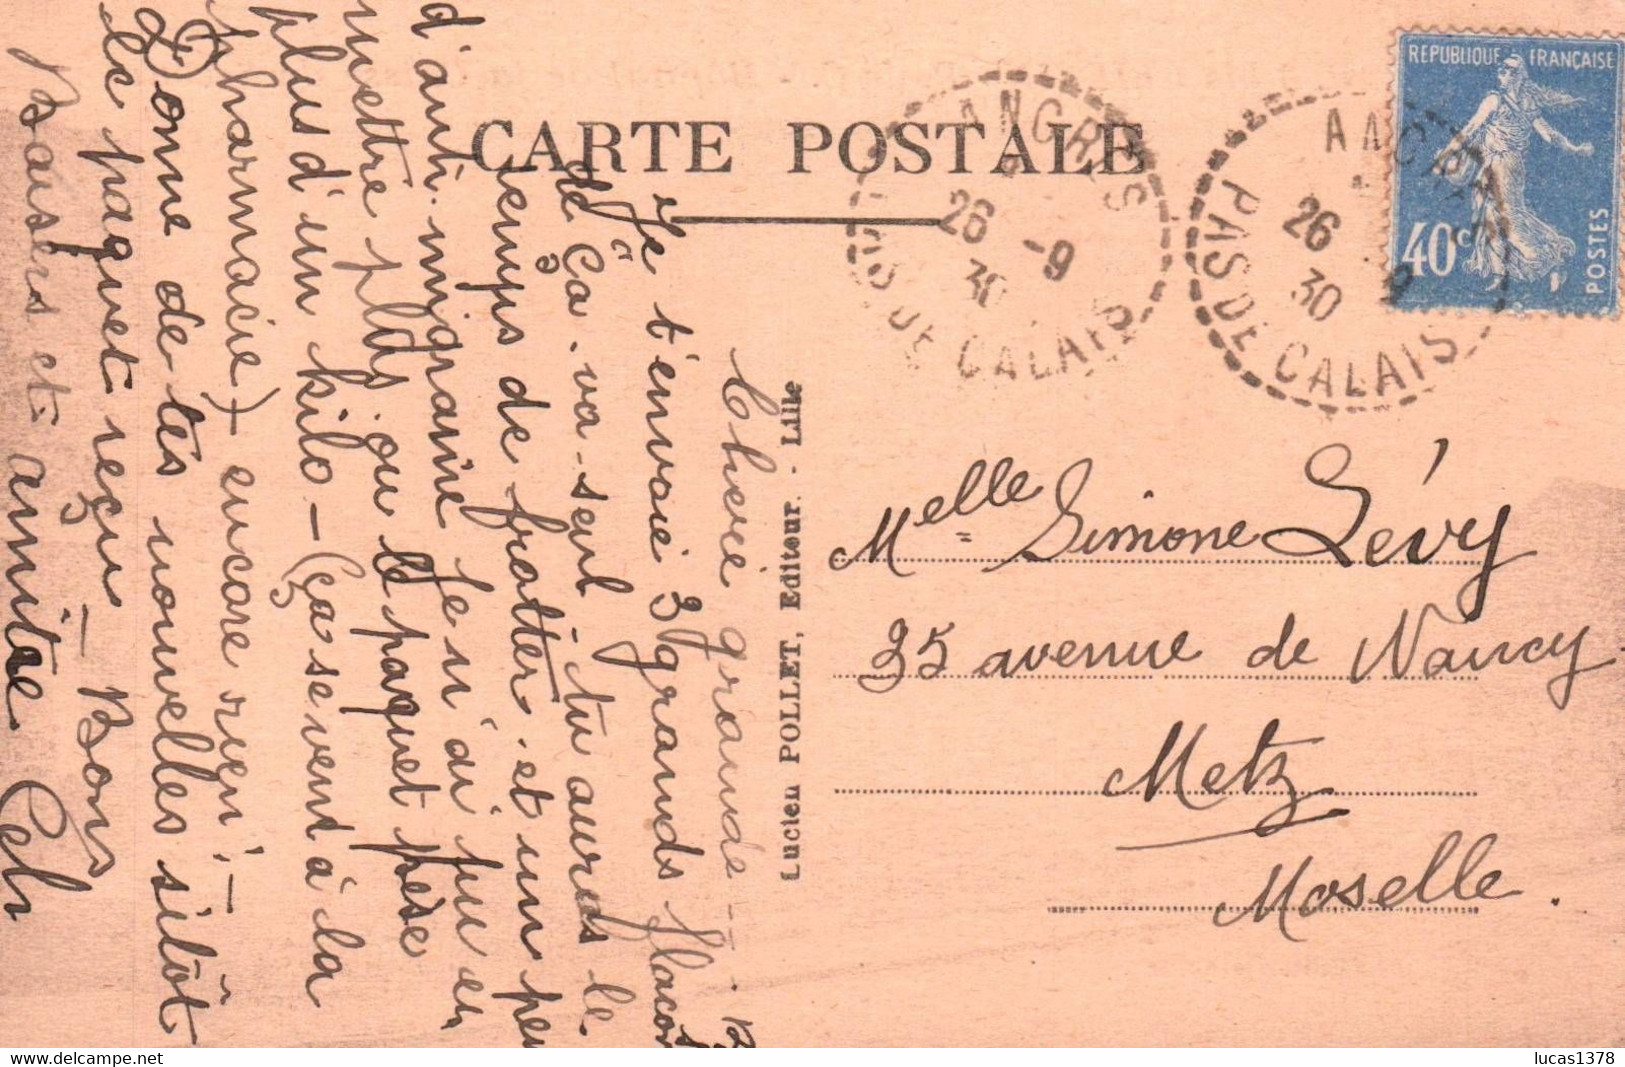 CARTE POSTALE
REPUBLIQUE FRANÇAISE
40c
POSTES
ANGRES
26 -9
30
PAS DE CALAIS
ANGRES
26 9
30
PAS DE CALAIS
Lucien POLLET, Editeur. - Lille
Melle Simone Lévy
35 avenue de Nancy
Metz
Moselle.
Chérie grande -
Je t'envoie 3 grands flacons
de Ça. va seul - tu auras le
temps de frotter. et un peu
d'anti-migraine. Je n'ai pu en
mettre plus. ou le paquet pèse
plus d'un kilo - (ça se vend à la
pharmacie) - encore rien! -
Donne de tes nouvelles sitôt
le paquet reçu - Bons
Baisers et amitié
lucas1378